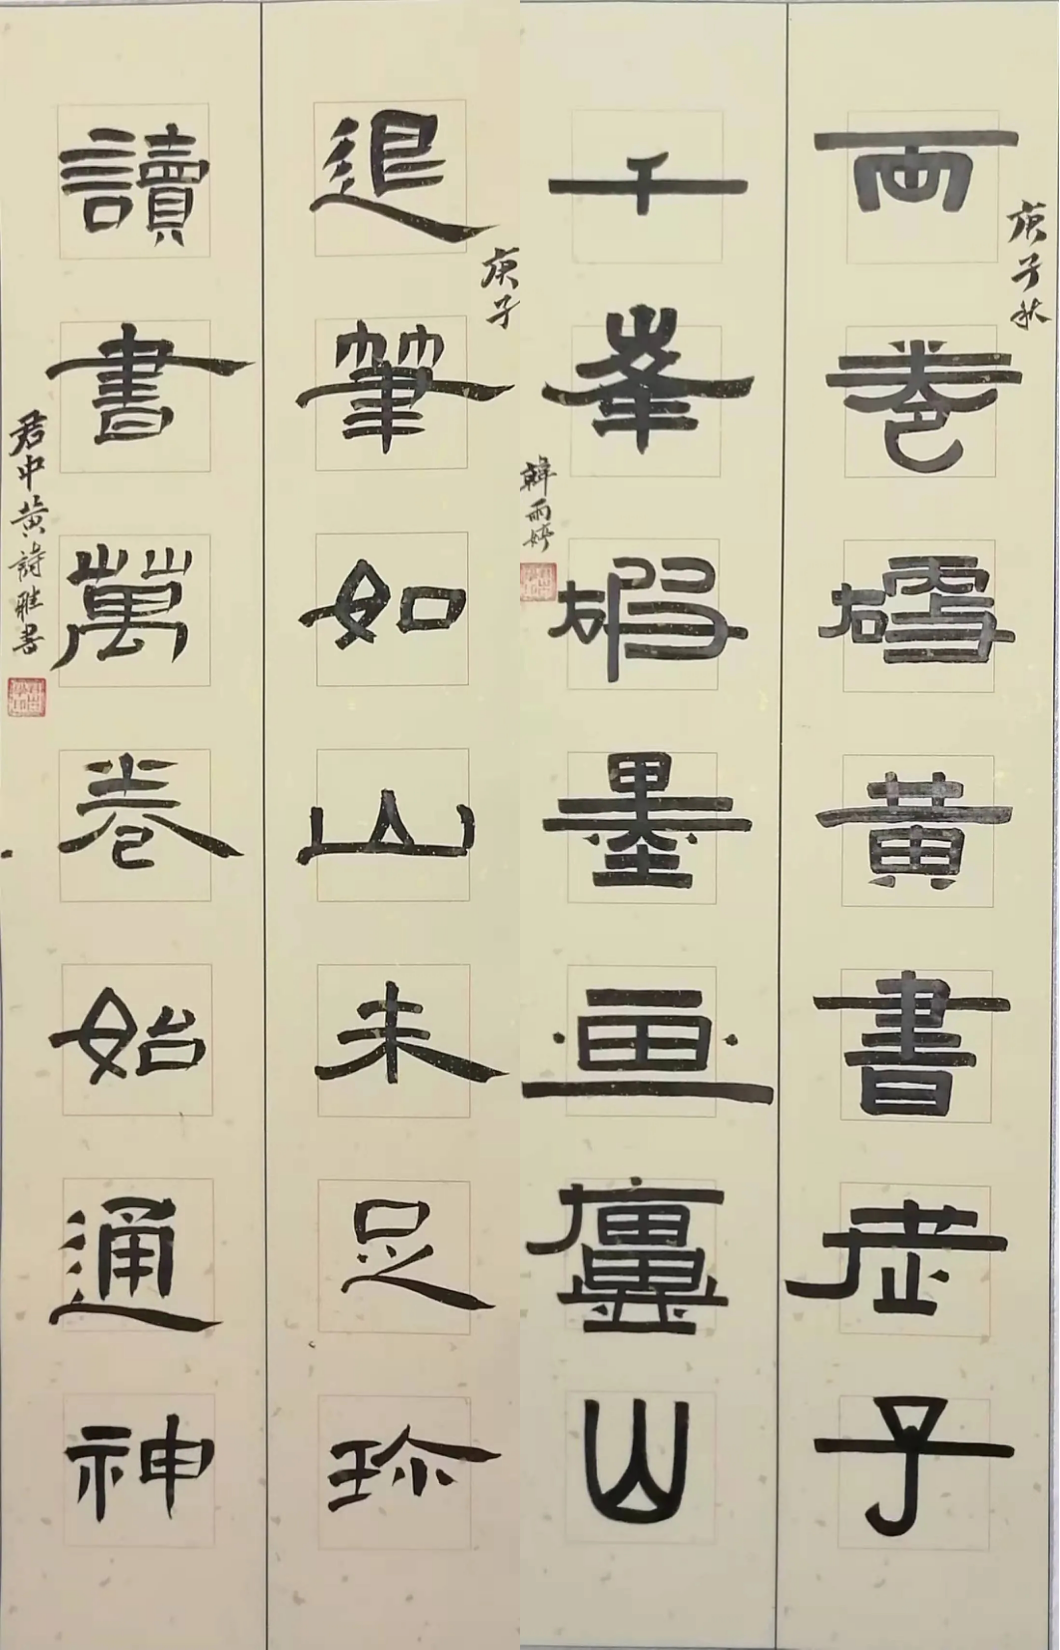 庚子秋
兩卷硬黄書老子
千峯破墨画廬山
韓雨婷
庚子
退筆如山未足珍
讀書萬卷始通神
君中黄詩雅書